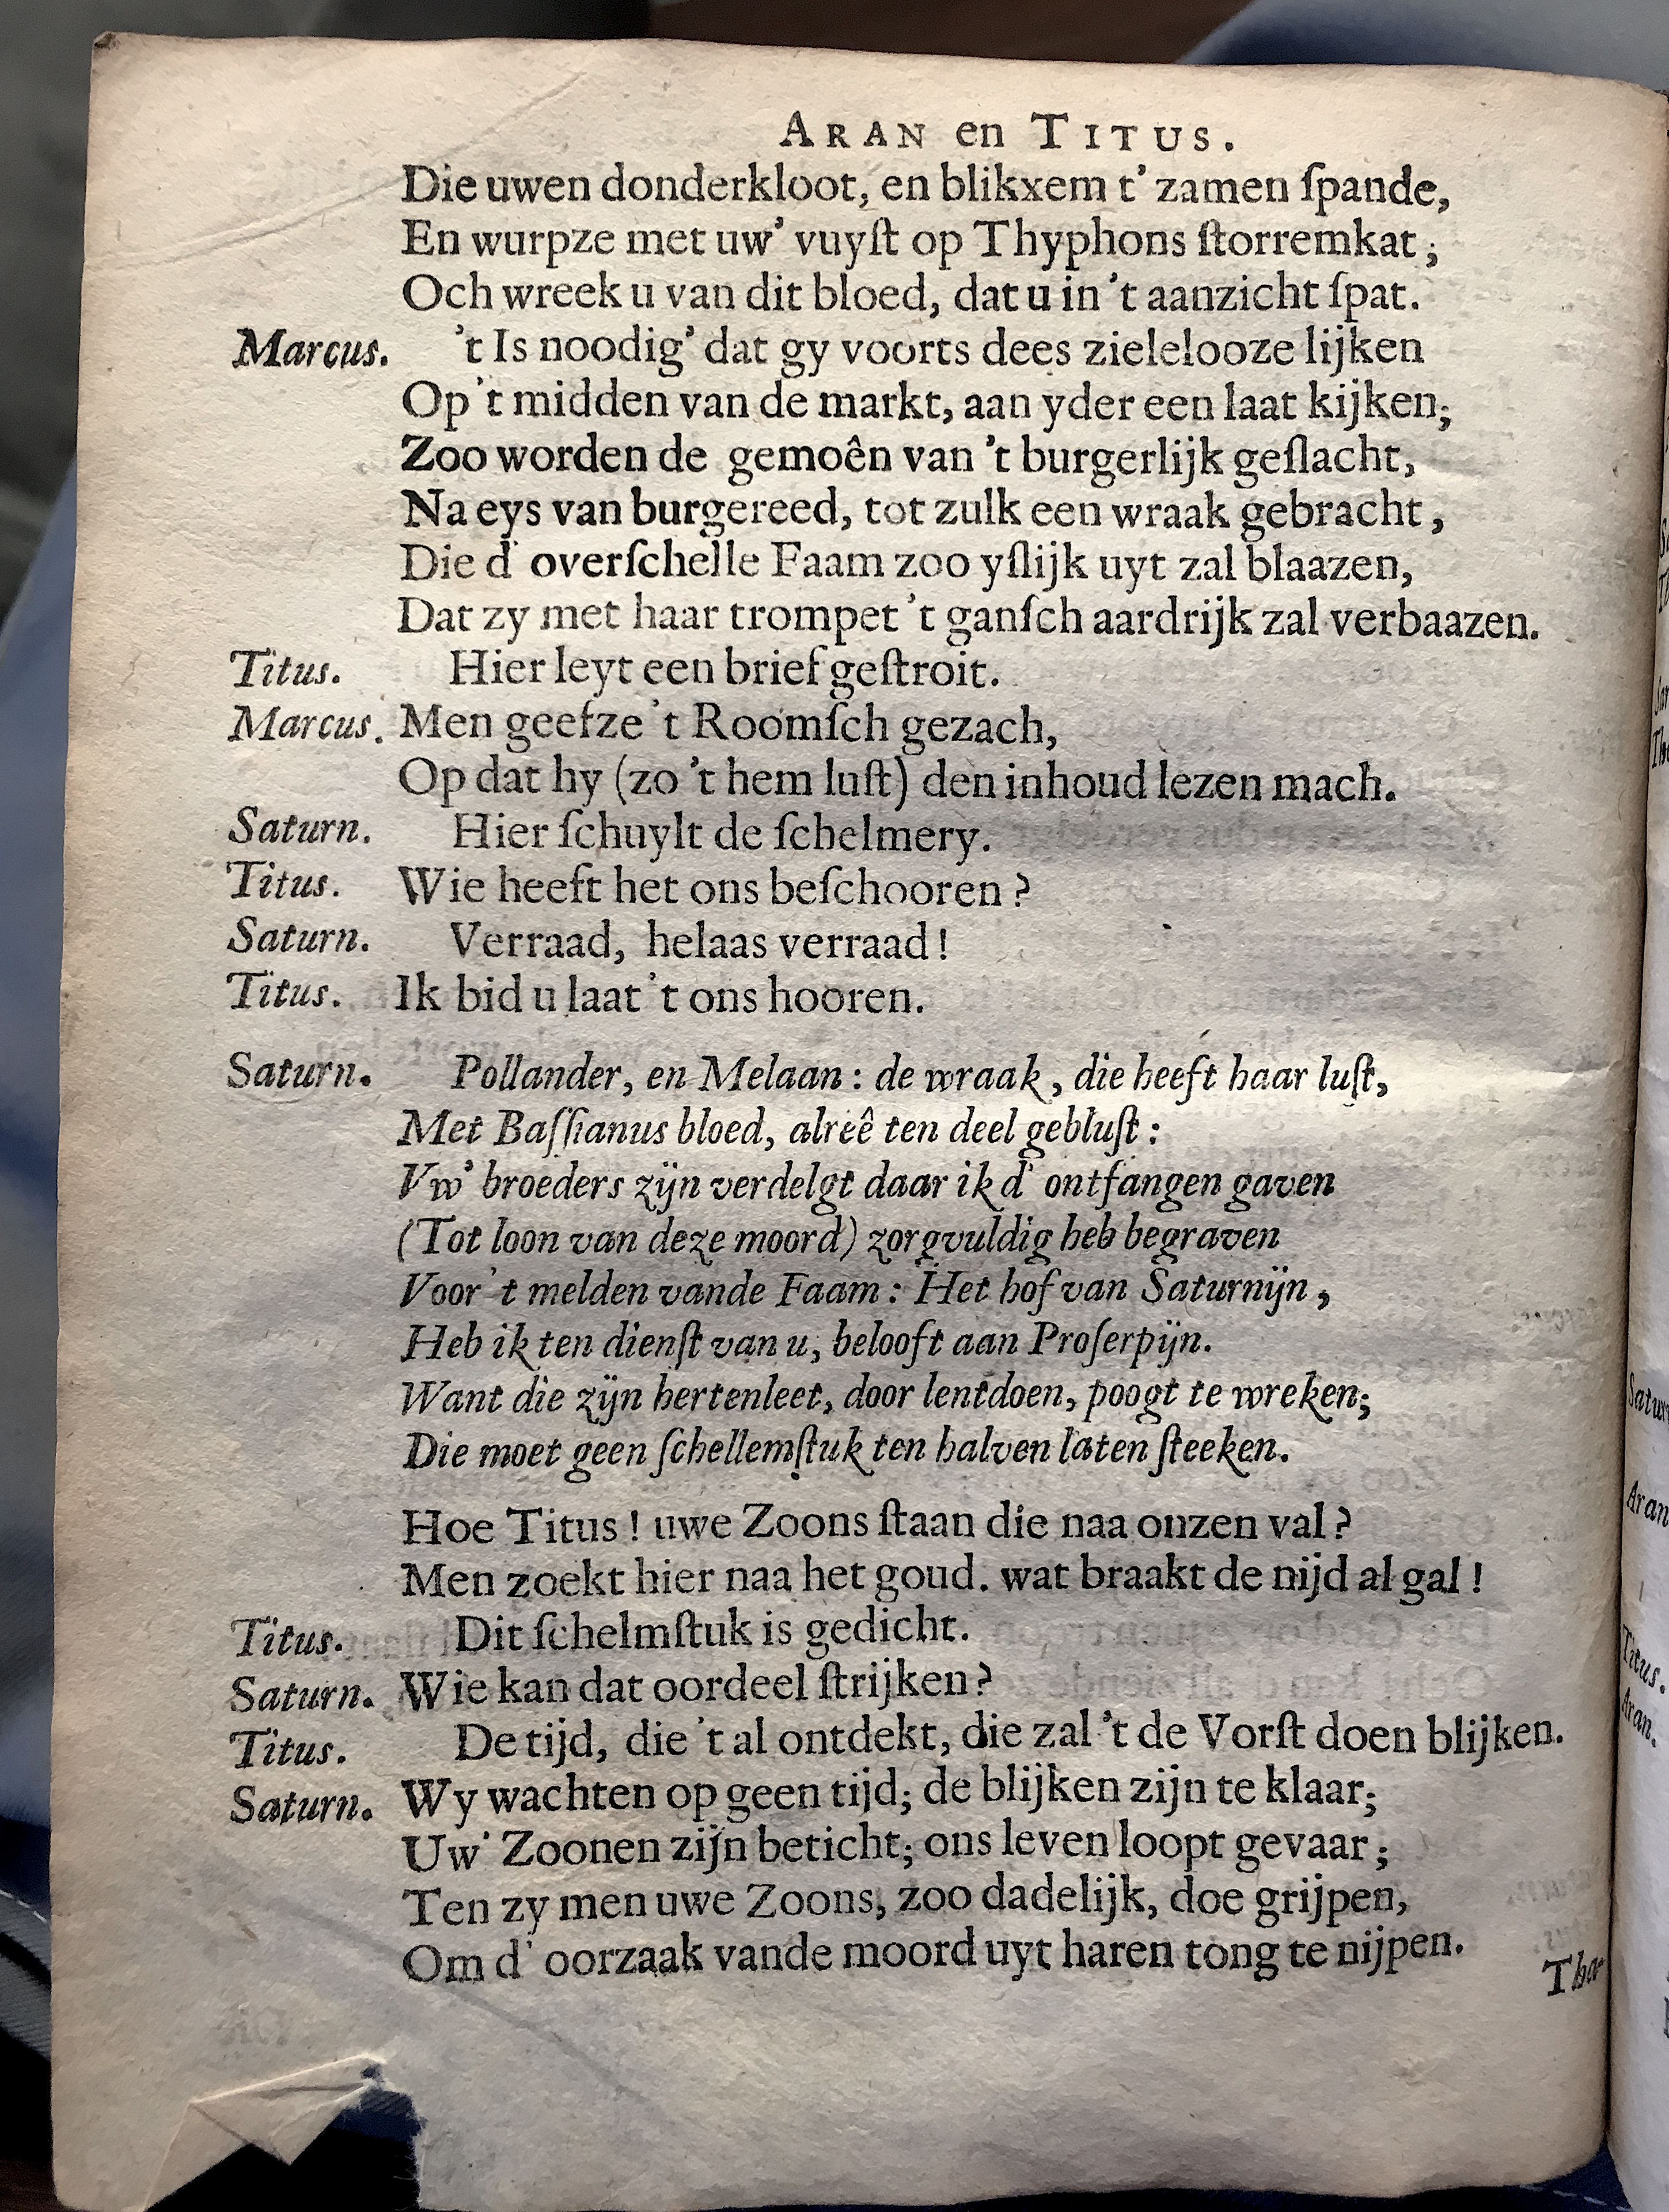 ARAN en TITUS.
Die uwen donderkloot, en blikxem t' zamen ſpande,
En wurpze met uw' vuyſt op Thyphons ſtorremkat;
Och wreek u van dit bloed, dat u in 't aanzicht ſpat.
Marcus. 't Is noodig' dat gy voorts dees zielelooze lijken
Op 't midden van de markt, aan yder een laat kijken;
Zoo worden de gemoên van 't burgerlijk geſlacht,
Na eys van burgereed, tot zulk een wraak gebracht,
Die d' overſchelle Faam zoo yſlijk uyt zal blaazen,
Dat zy met haar trompet 't ganſch aardrijk zal verbaazen.
Titus. Hier leyt een brief geſtroit.
Marcus. Men geefze 't Roomſch gezach,
Op dat hy (zo 't hem luſt) den inhoud lezen mach.
Saturn. Hier ſchuylt de ſchelmery.
Titus. Wie heeft het ons beſchooren?
Saturn. Verraad, helaas verraad!
Titus. Ik bid u laat 't ons hooren.
Saturn. Pollander, en Melaan: de wraak, die heeft haar luſt,
Met Baſſianus bloed, alreê ten deel gebluſt:
Vw' broeders zijn verdelgt daar ik d' ontfangen gaven
(Tot loon van deze moord) zorgvuldig heb begraven
Voor 't melden vande Faam: Het hof van Saturnijn,
Heb ik ten dienſt van u, belooft aan Proſerpijn.
Want die zijn hertenleet, door lentdoen, poogt te wreken;
Die moet geen ſchellemſtuk ten halven laten ſteeken.
Hoe Titus! uwe Zoons ſtaan die naa onzen val?
Men zoekt hier naa het goud. wat braakt de nijd al gal!
Titus. Dit ſchelmſtuk is gedicht.
Saturn. Wie kan dat oordeel ſtrijken?
Titus. De tijd, die 't al ontdekt, die zal 't de Vorſt doen blijken.
Saturn. Wy wachten op geen tijd; de blijken zijn te klaar;
Uw' Zoonen zijn beticht; ons leven loopt gevaar;
Ten zy men uwe Zoons, zoo dadelijk, doe grijpen,
Om d' oorzaak vande moord uyt haren tong te nijpen.
Tha-
Saturn
Aran
Titus.
Aran.